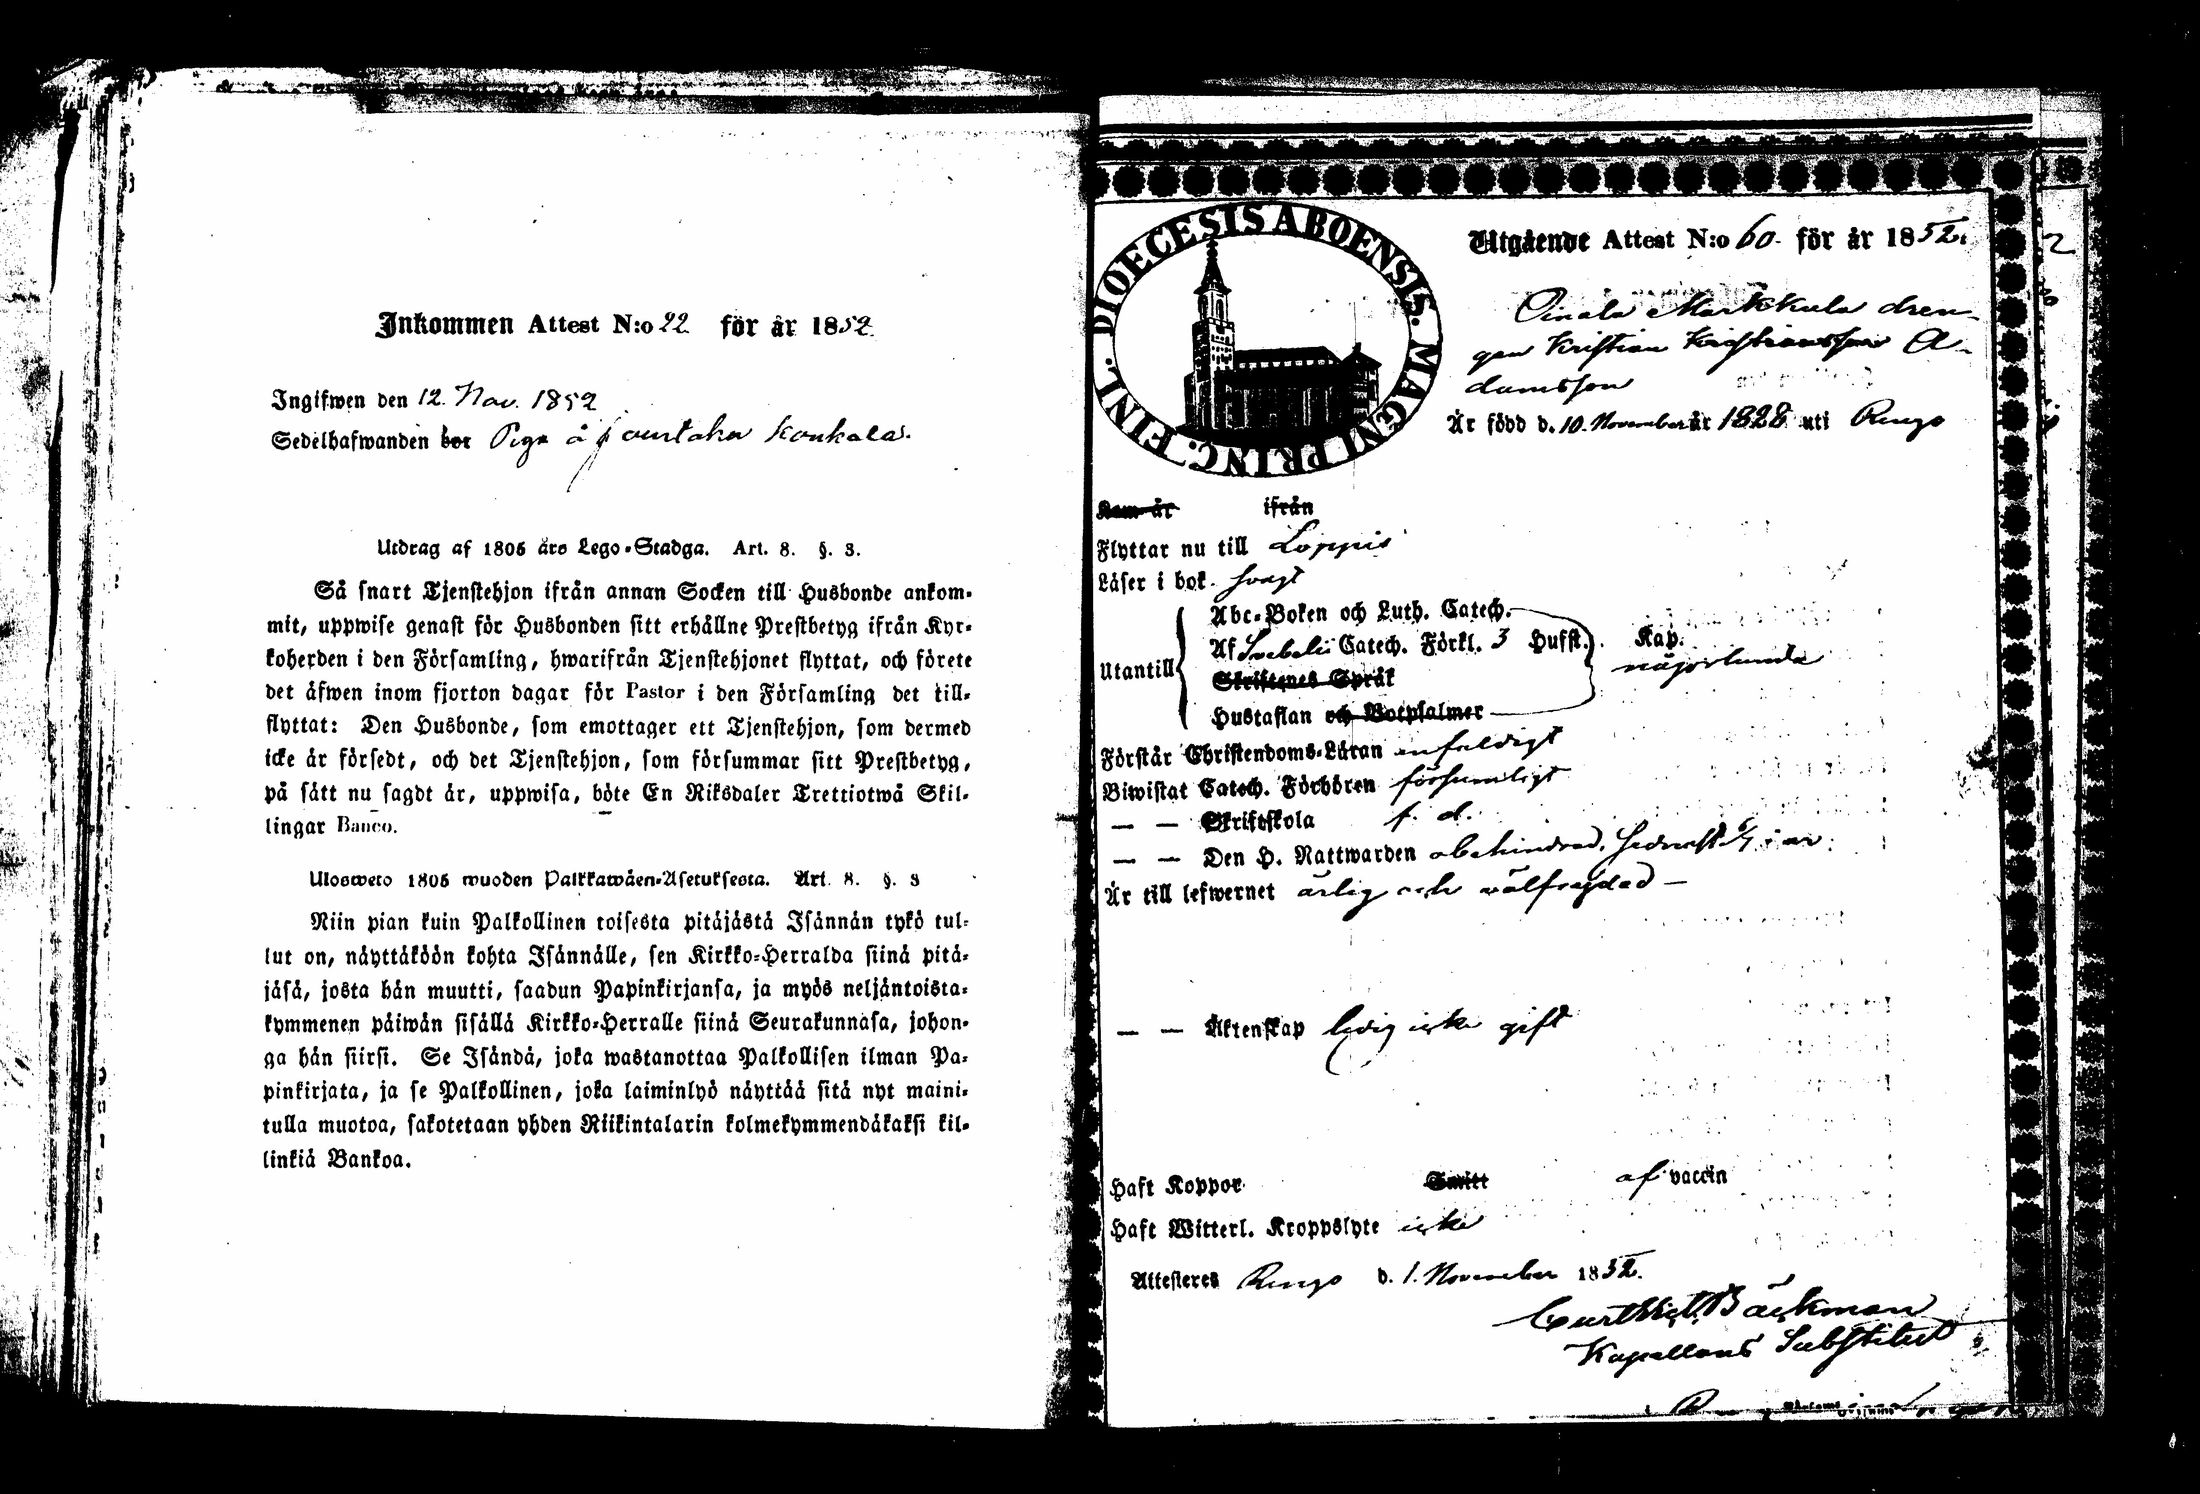 Inkommen Attest N:o 22 för år 1852.
Ingifwen den 12. Nov. 1852
Sedelhafwanden bor Piga å Kaukola.
Utdrag af 1805 års Lego-Stadga. Art. 8. §. 3.
Så snart Tjenstehjon ifrån annan Socken till Husbonde ankom-
mit, uppwise genast för Husbonden sitt erhållne Prestbetyg ifrån Kyr-
koherden i den Församling, hwarifrån Tjenstehjonet flyttat, och förete
det äfwen inom fjorton dagar för Pastor i den Församling det till-
flyttat: Den Husbonde, som emottager ett Tjenstehjon, som dermed
icke är försedt, och det Tjenstehjon, som försummar sitt Prestbetyg,
på sätt nu sagdt är, uppwisa, böte En Riksdaler Trettiotwå Skil-
lingar Banco.
Ulosweto 1805 wuoden Palkkawäen-Asetuksesta. Art. 8. §. 3
Niin pian kuin Palkollinen toisesta pitäjästä Isännän tykö tul-
lut on, näyttäköön kohta Isännälle, sen Kirkko-Herralda siinä pitä-
jäsä, josta hän muutti, saadun Papinkirjansa, ja myös neljäntoista-
kymmenen päiwän sisällä Kirkko-Herralle siinä Seurakunnasa, johon-
ga hän siirsi. Se Isändä, joka wastanottaa Palkollisen ilman Pa-
pinkirjata, ja se Palkollinen, joka laiminlyö näyttää sitä nyt maini-
tulla muotoa, sakotetaan yhden Riikintalarin kolmekymmendäkaksi kil-
linkiä Bankoa.
DIOECESIS ABOENSIS. MAGNI PRINC. FINL.
Utgående Attest N:o 60. för år 1852.
Oinala Markkula dren-
gen Kristian Kristiansson A-
damsson
Är född d. 10. November år 1828 uti Rengo
Kom år ifrån
Flyttar nu till Loppis
Läser i bok. svagt
Utantill
Abc-Boken och Luth. Catech.
Af Svebelii Catech. Förkl. 3 Hufst. Kap.
någorlunda
Skriftenes Språk
Hustaflan och Botpsalmer
Förstår Christendoms-Läran enfaldigt
Biwistat Catech. Förhören försumligt
— — Skriftskola f. d.
— — Den H. Nattwarden obehindrad, sednast i år
Är till lefwernet ärlig och välfrejdad —
— — Äktenskap ledig icke gift
Haft Koppor Smitt af vaccin
Haft Witterl. Kroppslyte icke
Attesteres Rengo d. 1. November 1852.
Bäckman
Kapellans Substitut